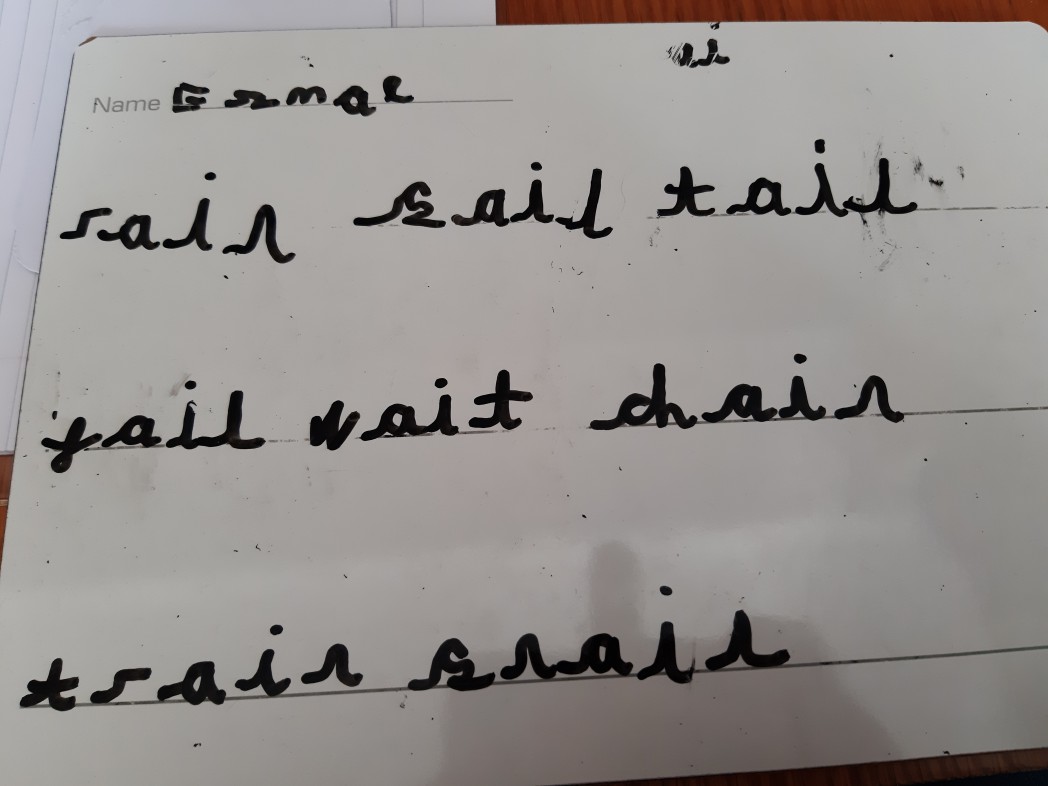 ai
Name Esmae
rain sail tail
jail wait chain
train snail